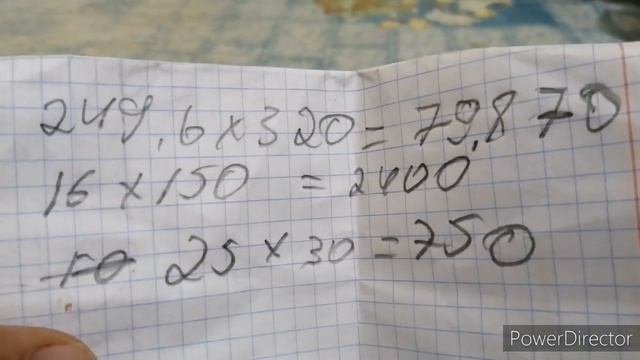 249.6 x 320 = 79.870
16 x 150 = 2400
10 25 x 30 = 750
PowerDirector